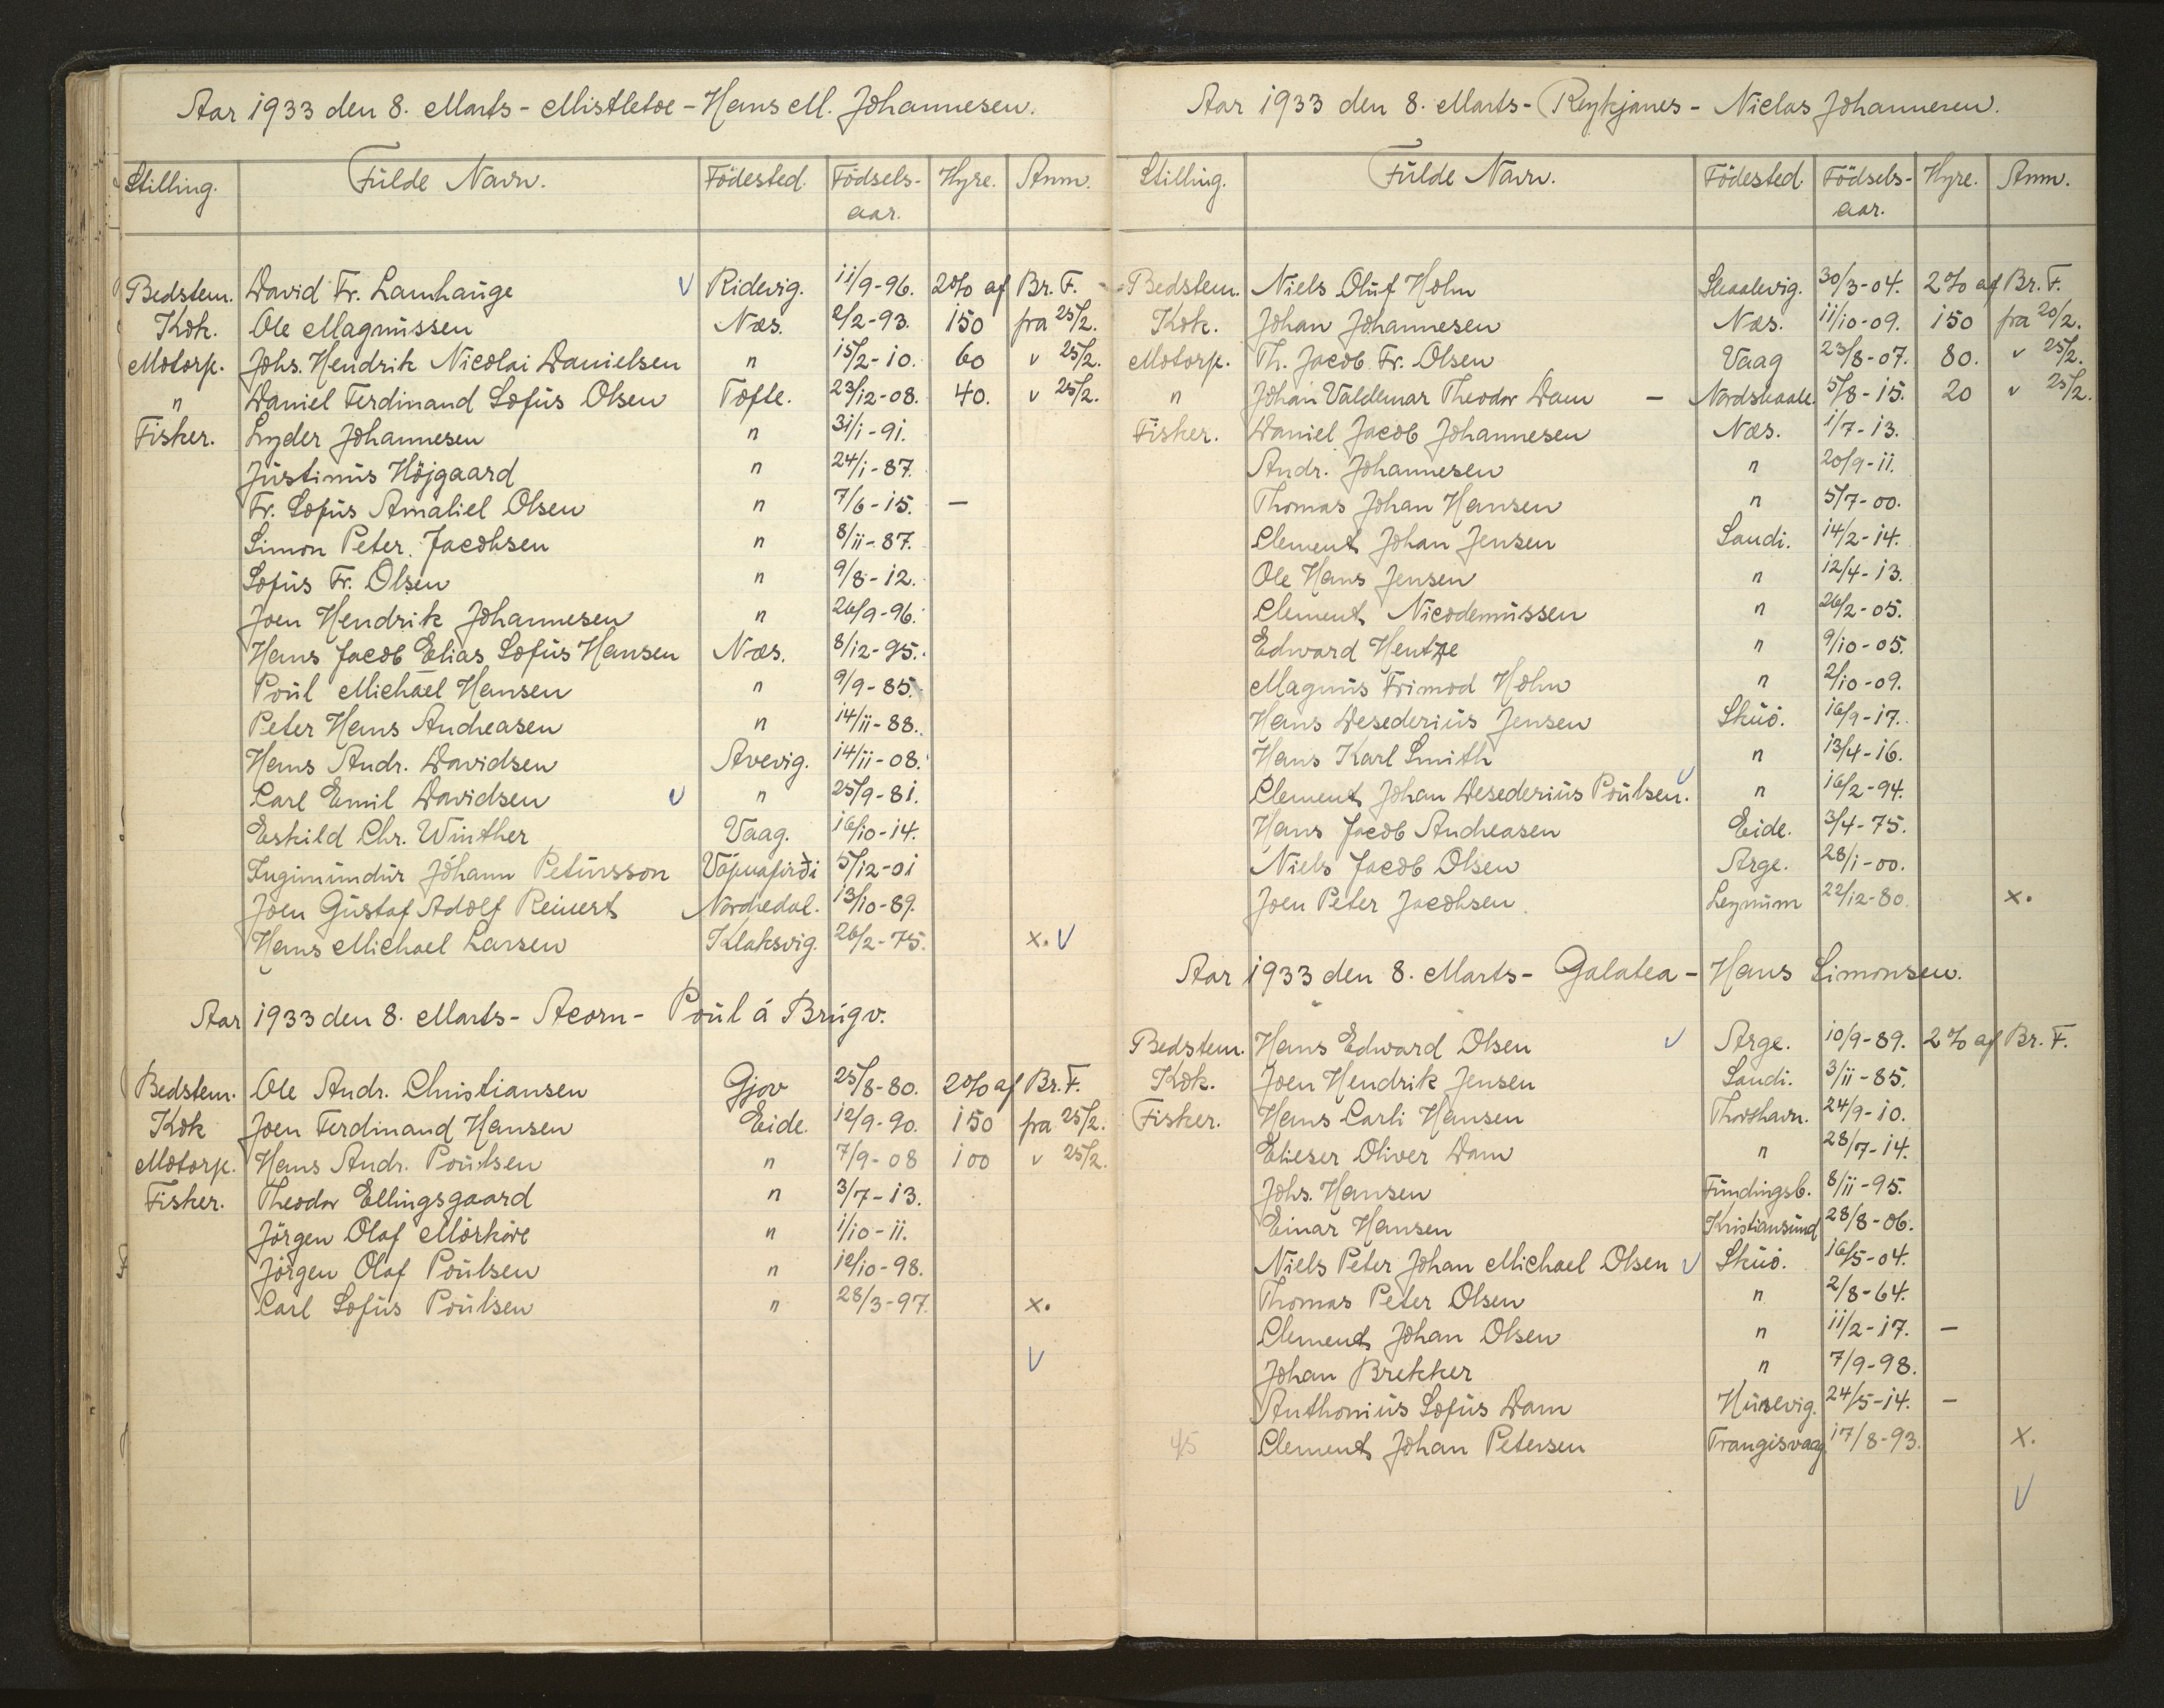 Aar 1933 den 8. Marts - Mistletoe - Hans M. Johannesen.
Stilling. Fülde Navn. Födested. Födsels-aar. Hyre. Anm.
Bedstem. David Fr. Lamhauge V Ridevig. 11/9-96. 2% af Br. F.
Kok. Ole Magnüssen Næs. 2/2-93. 150 fra 25/2.
Motorp. Johs. Hendrik Nicolai Danielsen n 15/2-10. 60 v 25/2.
n Daniel Ferdinand Sofüs Olsen Tofte. 23/12-08. 40. v 25/2.
Fisker. Lyder Johannesen n 31/1-91.
Jüstinüs Höjgaard n 24/1-87.
Fr. Sofüs Amaliel Olsen n 7/6-15. -
Simon Peter Jacobsen n 8/11-87.
Sofüs Fr. Olsen n 9/8-12.
Joen Hendrik Johannesen n 26/9-96.
Hans Jacob Elias Sofüs Hansen Næs. 8/12-95.
Poül Michael Hansen n 9/9-85.
Peter Hans Andreasen n 14/11-88.
Hans Andr. Davidsen Avevig. 14/11-08.
Carl Emil Davidsen V n 25/9-81.
Eskild Chr. Winther Vaag. 16/10-14.
Ingimündür Jóhann Petürsson Vópnafirði 5/12-01
Joen Güstaf Adolf Reinert Norredal. 13/10-89.
Hans Michael Larsen Klaksvig. 26/2-75. x. V
Aar 1933 den 8. Marts - Acorn - Poül á Brúgv.
Bedstem. Ole Andr. Christiansen Gjov 25/8-80. 2% af Br. F.
Kok Joen Ferdinand Hansen Eide. 12/9-90. 150 fra 25/2.
Motorp. Hans Andr. Poülsen n 7/9-08 100 v 25/2.
Fisker. Theodor Ellingsgaard n 3/7-13.
Jörgen Olaf Mörköre n 1/10-11.
Jörgen Olaf Poülsen n 12/10-98.
Carl Sofüs Poülsen n 28/3-97. x.
V
Aar 1933 den 8. Marts - Reykjanes - Niclas Johannesen.
Stilling. Fülde Navn. Födested. Födsels-aar. Hyre. Anm.
Bedstem. Niels Olüf Holm Skaalevig. 30/3-04. 2% af Br. F.
Kok. Johan Johannesen Næs. 11/10-09. 150 fra 20/2.
Motorp. Th. Jacob Fr. Olsen Vaag 23/8-07. 80. v 25/2.
n Johan Valdemar Theodor Dam - Nordskaale. 5/8-15. 20 v 25/2.
Fisker. Daniel Jacob Johannesen Næs. 1/7-13.
Andr. Johannesen n 20/9-11.
Thomas Johan Hansen n 5/7-00.
Clement Johan Jensen Sandi. 14/2-14.
Ole Hans Jensen n 12/4-13.
Clement Nicodemüssen n 26/2-05.
Edward Hentze n 9/10-05.
Magnüs Frimod Holm n 2/10-09.
Hans Desederiüs Jensen Sküö. 16/9-17.
Hans Karl Smith n 13/4-16.
Clement Johan Desederiüs Poülsen. V n 16/2-94.
Hans Jacob Andreasen Eide. 3/4-75.
Niels Jacob Olsen Arge. 28/1-00.
Joen Peter Jacobsen Leynüm 22/12-80. x.
Aar 1933 den 8. Marts - Galatea - Hans Simonsen.
Bedstem. Hans Edward Olsen V Arge. 10/9-89. 2% af Br. F.
Kok. Joen Hendrik Jensen Sandi. 3/11-85.
Fisker. Hans Carli Hansen Thorshavn. 24/9-10.
Elieser Oliver Dam n 28/7-14.
Johs. Hansen Fündingsb. 8/11-95.
Einar Hansen Kristiansünd 28/8-06.
Niels Peter Johan Michael Olsen V Sküö. 16/5-04.
Thomas Peter Olsen n 2/8-64.
Clement Johan Olsen n 11/2-17. -
Johan Brekker n 7/9-98.
Anthoniüs Sofüs Dam Hüsevig. 24/5-14. -
4/5 Clement Johan Petersen Trangisvaag. 17/8-93. x.
V